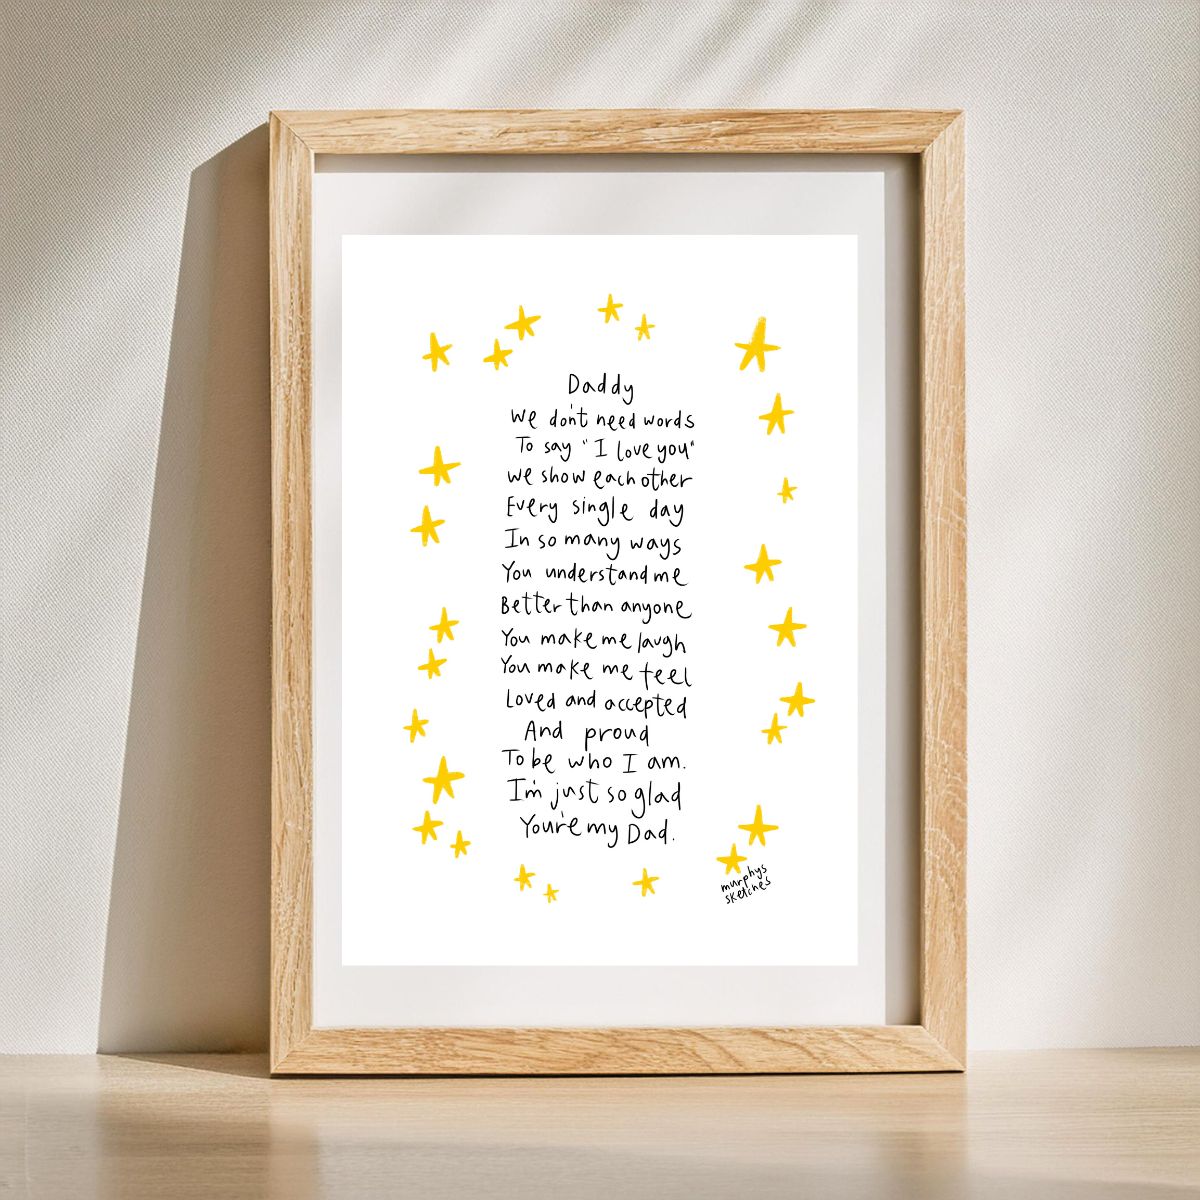 Daddy
We don't need words
To say "I love you"
We show each other
Every single day
In so many ways
You understand me
Better than anyone
You make me laugh
You make me feel
Loved and accepted
And proud
To be who I am.
I'm just so glad
You're my Dad.
murphys
sketches